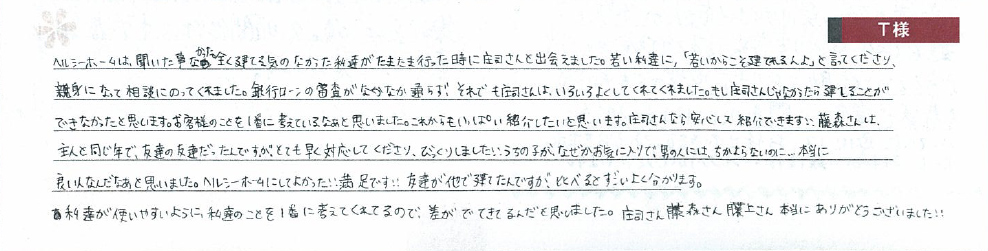 T様
ヘルシーホームは、聞いた事なかった全く建てる気のなかった私達がたまたま行った時に庄司さんと出会えました。若い私達に、「若いからこそ建てれるんよ」と言ってくださり、
親身になって相談にのってくれました。銀行ローンの審査がなかなか通らず、それでも庄司さんは、いろいろよくしてくれてくれました。もし庄司さんじゃなかったら建てることが
できなかったと思います。お客様のことを1番に考えているなあと思いました。これからもいっぱい紹介したいと思います。庄司さんなら安心して紹介できます!! 藤森さんは、
主人と同じ年で、友達の友達だったんですが、とても早く対応してくださり、びっくりしました!! うちの子が、なぜかお気に入りで、男の人には、ちかよらないのに…本当に
良い人なんだなあと思いました。ヘルシーホームにしてよかった!! 満足です!! 友達が他で建てたんですが、比べるとすごいよく分かります。
私達が使いやすいように、私達のことを1番に考えてくれてるので、差がでてきてるんだと思いました。庄司さん藤森さん さん本当にありがとうございました!!